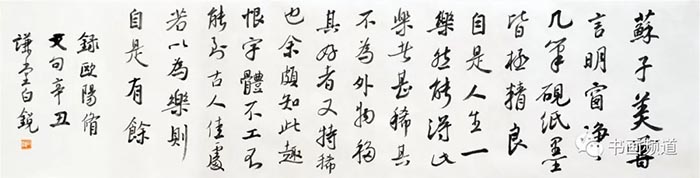 蘇子美嘗
言明窗淨
几筆硯紙墨
皆極精良
自是人生一
樂然能得此
樂者甚稀其
不為外物移
其好者又特稀
也余頗知此趣
恨字體不工不
能到古人佳處
若以為樂則
自是有餘
錄歐陽脩
文句辛丑
謙堂白銳
书画频道